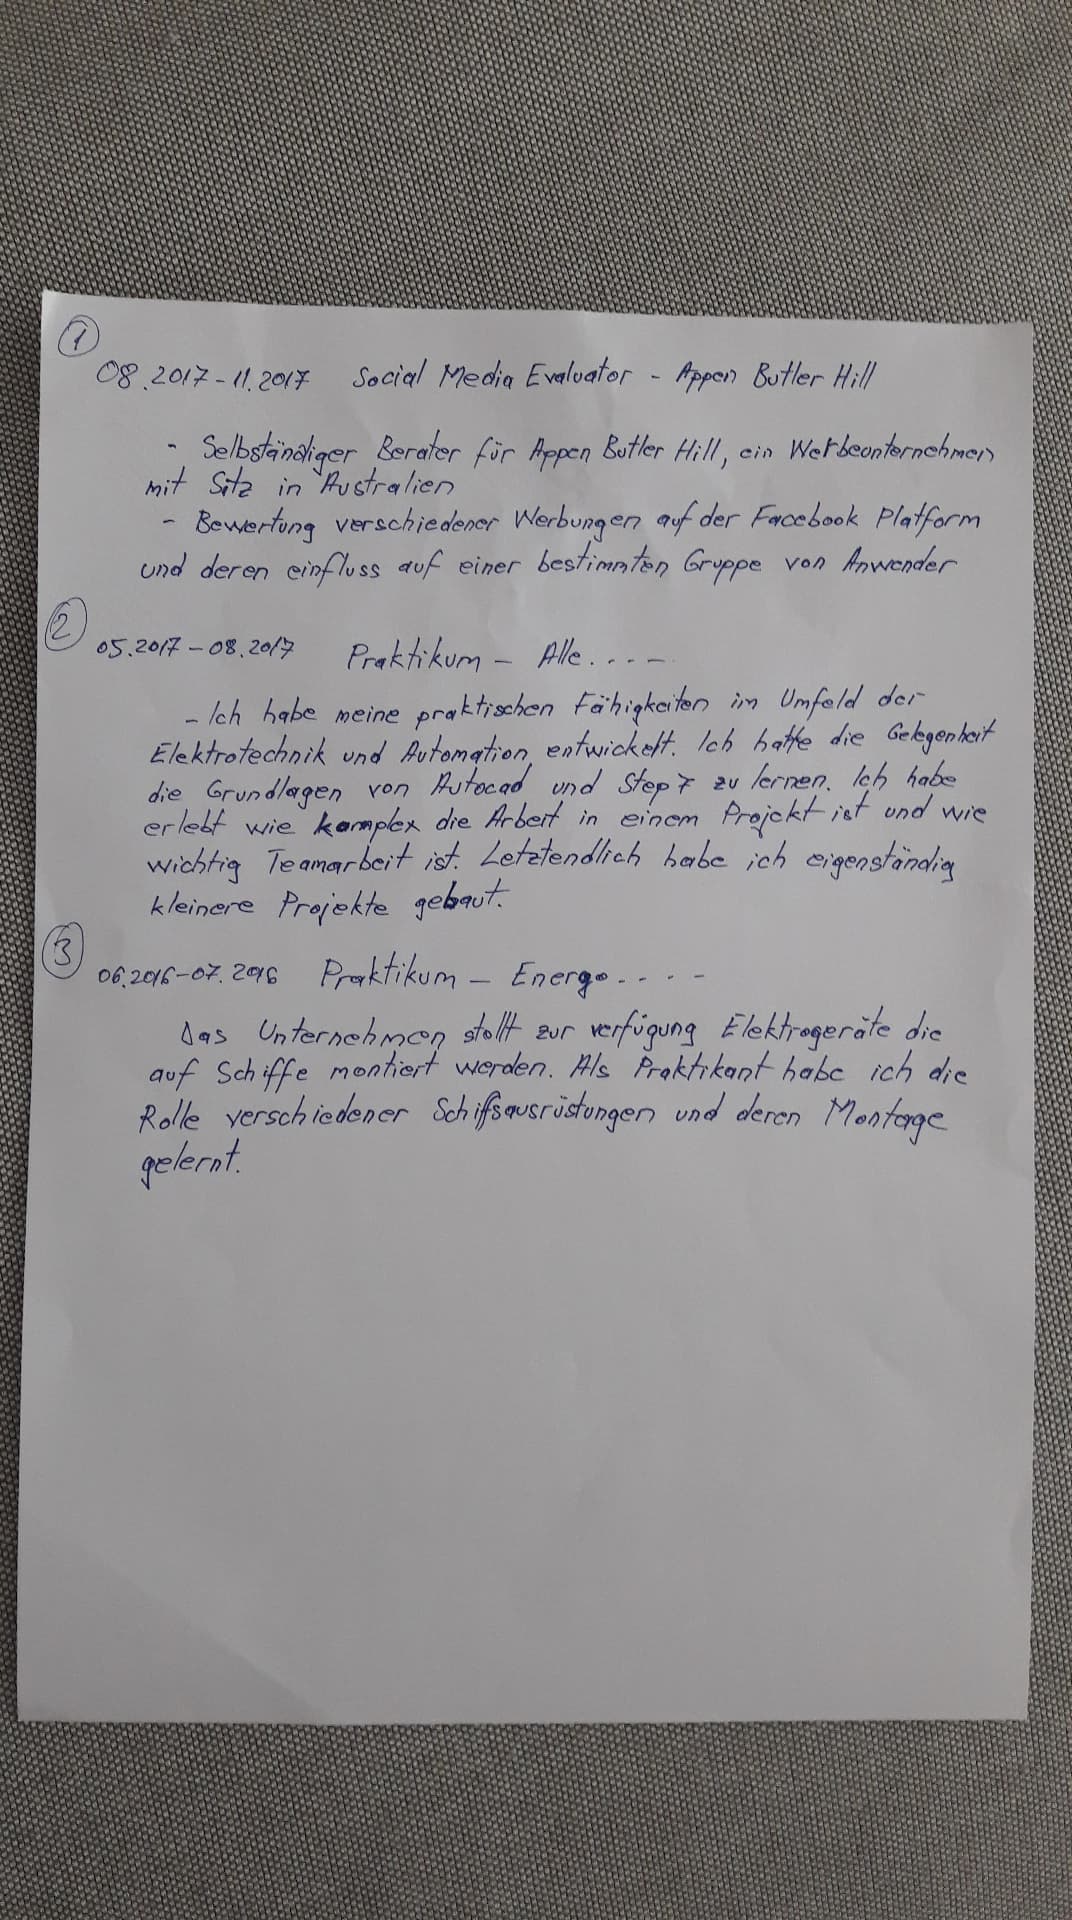 1
08.2017-11.2017 Social Media Evaluator - Appen Butler Hill
- Selbständiger Berater für Appen Butler Hill, ein Werbeunternehmen
mit Sitz in Australien
- Bewertung verschiedener Werbungen auf der Facebook Platform
und deren einfluss auf einer bestimmten Gruppe von Anwender
2
05.2017-08.2017 Praktikum - Alle....-
- Ich habe meine praktischen Fähigkeiten im Umfeld der
Elektrotechnik und Automation entwickelt. Ich hatte die Gelegenheit
die Grundlagen von Autocad und Step 7 zu lernen. Ich habe
erlebt wie komplex die Arbeit in einem Projekt ist und wie
wichtig Teamarbeit ist. Letztendlich habe ich eigenständig
kleinere Projekte gebaut.
3
06.2016-07.2016 Praktikum - Energo....-
Das Unternehmen stellt zur verfügung Elektrogeräte die
auf Schiffe montiert werden. Als Praktikant habe ich die
Rolle verschiedener Schifsausrüstungen und deren Montage
gelernt.